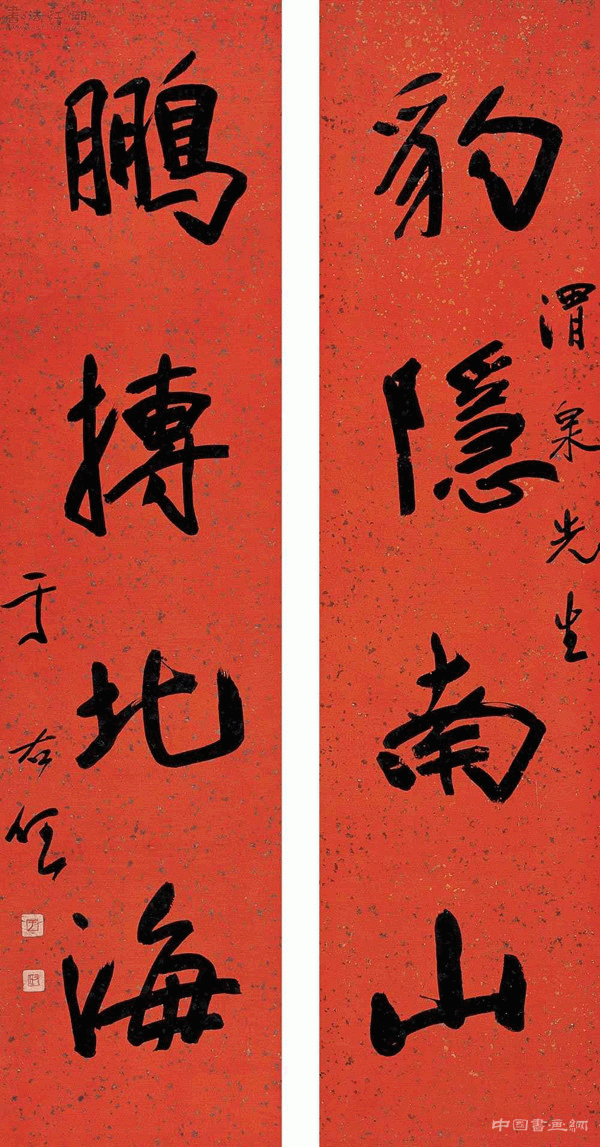 豹隱南山
渭泉先生
鵬搏北海
于右任
中国書画網